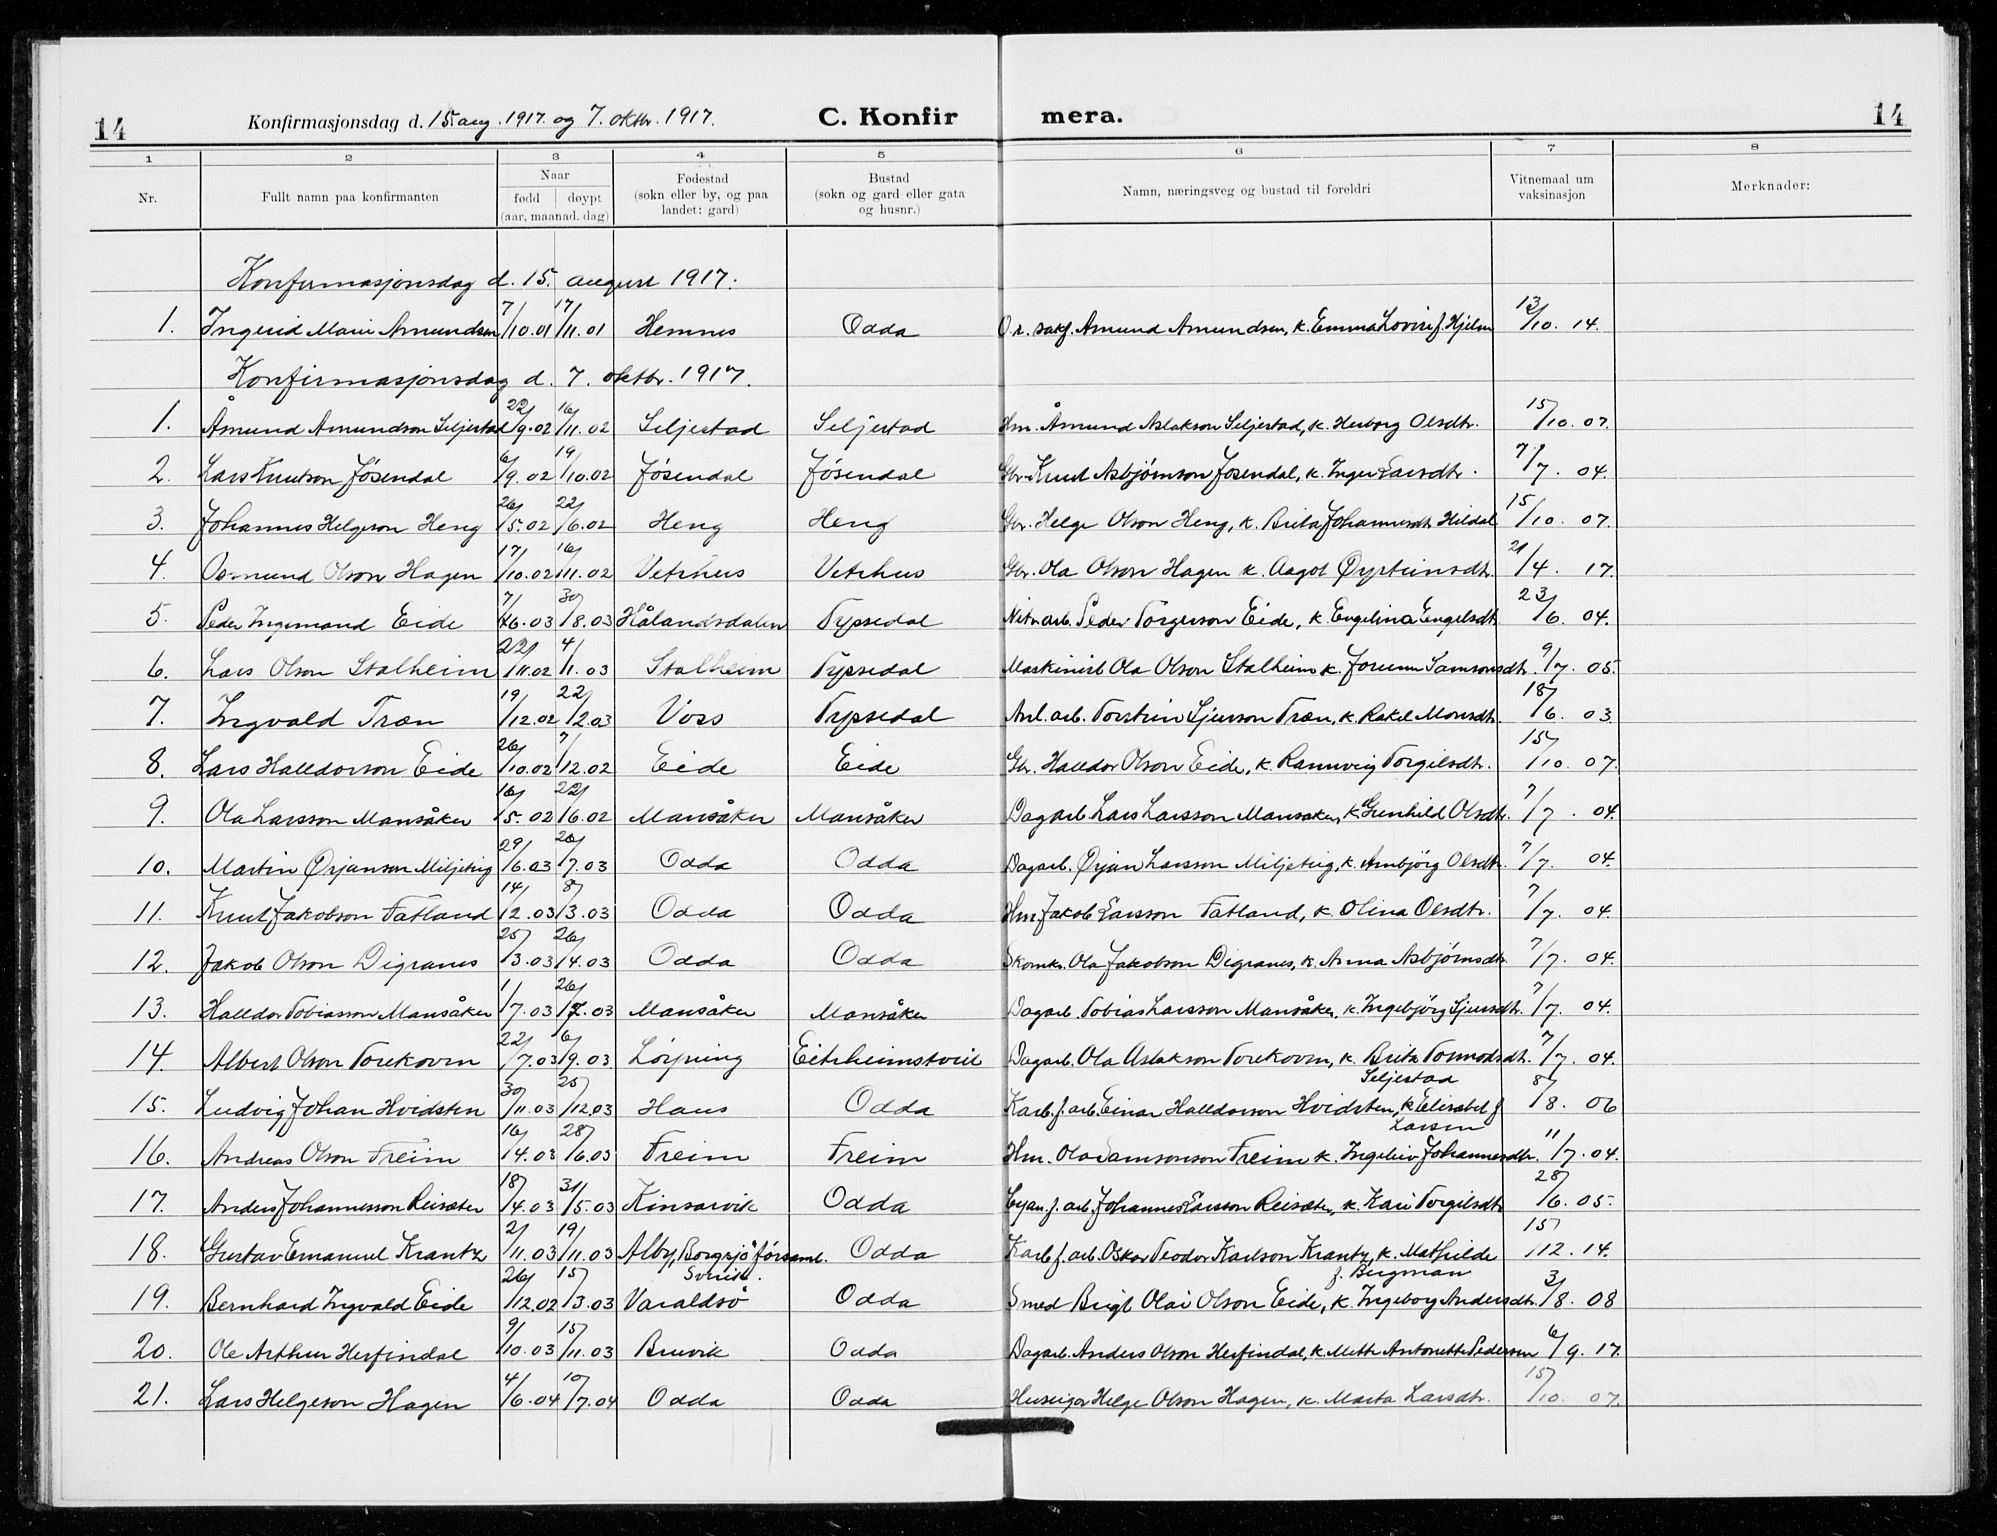 14 Konfirmasjonsdag d. 15. aug. 1917. og 7. oktbr. 1917. C. Konfirmera. 14
1 2 3 4 5 6 7 8
Nr. Fullt namn paa konfirmanten Naar fødd døypt (aar, maanad. dag) Fødestad (sokn eller by, og paa landet: gard) Bustad (sokn og gard eller gata og husnr.) Namn, næringsveg og bustad til foreldri Vitnemaal um vaksinasjon Merknader:
Konfirmasjonsdag d. 15. august 1917.
1. Ingerid Marie Amundsen 7/10.01 17/11.01 Hemnes Odda O.r. sakf. Amund Amundsen, k. Emma Lovise f. Hjelm 13/10. 14.
Konfirmasjonsdag d. 7. oktbr. 1917.
1. Åmund Åmundson Seljestad 22/9.02 16/11.02 Seljestad Seljestad Hm. Åmund Aslakson Seljestad, k. Herborg Olsdtr. 15/10. 07.
2. Lars Knutson Jösendal 6/9.02 19/10.02 Jösendal Jösendal Gbr. Knut Asbjørnson Jösendal, k. Inger Larsdtr. 7/7. 04.
3. Johannes Helgeson Heng 26/5.02 22/6.02 Heng Heng Gbr. Helge Olson Heng, k. Brita Johannesdtr. Hildal 15/10. 07.
4. Osmund Olson Hagen 17/10.02 16/11.02 Vetrhus Vetrhus Gbr. Ola Olson Hagen k. Aagot Øysteinsdtr. 21/4. 17.
5. Peder Ingemand Eide 7/6.03 30/8.03 Hålandsdalen Tyssedal Nitr. arb. Peder Torgerson Eide, k. Engelina Engelsdtr. 23/6 04.
6. Lars Olson Stalheim 22/11.02 4/1.03 Stalheim Tyssedal Maskinist Ola Olson Stalheim k. Jorunn Samsonsdtr. 9/7. 05.
7. Ingvald Træn 19/12.02 22/2.03 Voss Tyssedal Anl. arb. Torstein Sjurson Træn, k. Rakel Monsdtr. 18/6. 03.
8. Lars Halldorson Eide 26/10.02 7/12.02 Eide Eide Gbr. Halldor Olson Eide, k. Rannveig Torgilsdtr. 15/10. 07.
9. Ola Larsson Mansåker 16/5.02 22/6.02 Mansåker Mansåker Dagarb. Lars Larsson Mansåker, k. Gunhild Olsdtr. 7/7. 04.
10. Martin Ørjanson Miljeteig 29/6.03 26/7.03 Odda Odda Dagarb. Ørjan Larsson Miljeteig, k. Ambjörg Olsdtr. 7/7. 04.
11. Knut Jakobson Tatland 14/2.03 8/3.03 Odda Odda Hm Jakob Larsson Tatland, k. Olina Olsdtr. 7/7. 04.
12. Jakob Olson Digranes 25/3.03 26/4.03 Odda Odda Skomk. Ola Jakobson Digranes, k. Anna Asbjørnsdtr. 7/7. 04.
13. Halldor Tobiasson Mansåker 1/7.03 26/7.03 Mansåker Mansåker Dagarb. Tobias Larsson Mansåker, k. Ingebjörg Sjursdtr. 7/7. 04.
14. Albert Olson Torekovn 22/7.03 6/9.03 Löyning Eitrheimstveit Dagarb. Ola Aslakson Torekovn, k. Brita Tormodsdtr. Seljestad 7/7. 04.
15. Ludvig Johan Hvidsten 30/11.03 25/12.03 Haus Odda Karb. f. arb. Einar Halldorson Hvidsten, k Elisabet f. Larsen 8/8. 06
16. Andreas Olson Freim 16/4.03 28/6.03 Freim Freim Hm. Ola Samsonson Freim k. Ingeleiv Johannesdtr. 11/7. 04.
17. Anders Johannesson Reisæter 18/4.03 31/5.03 Kinsarvik Odda Cyan. f. arb. Johannes Larsson Reisæter, k. Kari Torgilsdtr 28/6. 05.
18. Gustav Emanuel Krantz 2/11.03 19/11.03 Alby, Borgsjö församl. Sverike. Odda Karb f. arb. Oskar Teodor Karlson Krantz, k. Mathilde f. Bergman 15/12. 14.
19. Bernhard Ingvald Eide 26/12.02 15/3.03 Varaldsö Odda Smed Brigt Olai Olson Eide, k. Ingeborg Andersdtr. 3/8. 08
20. Ole Arthur Herfindal 9/10.03 15/11.03 Bruvik Odda Dagarb. Anders Olson Herfindal, k. Mette Antonette Pedersen 6/9. 17.
21. Lars Helgeson Hagen 4/6.04 10/7.04 Odda Odda Huseigar Helge Olson Hagen, k. Marta Larsdtr. 15/10. 07.